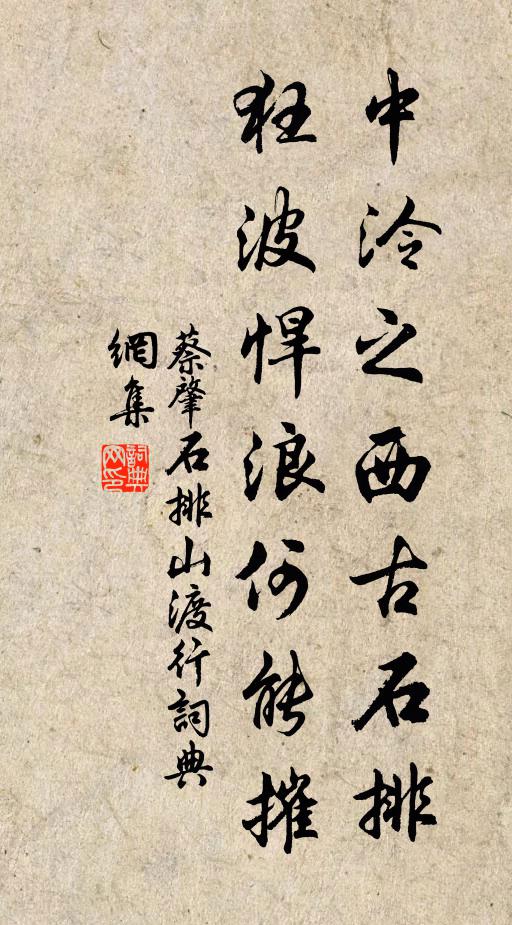 中泠之西古石排
狂波悍浪何能摧
蔡肇石排山渡行詞典
網集
詞典
网印